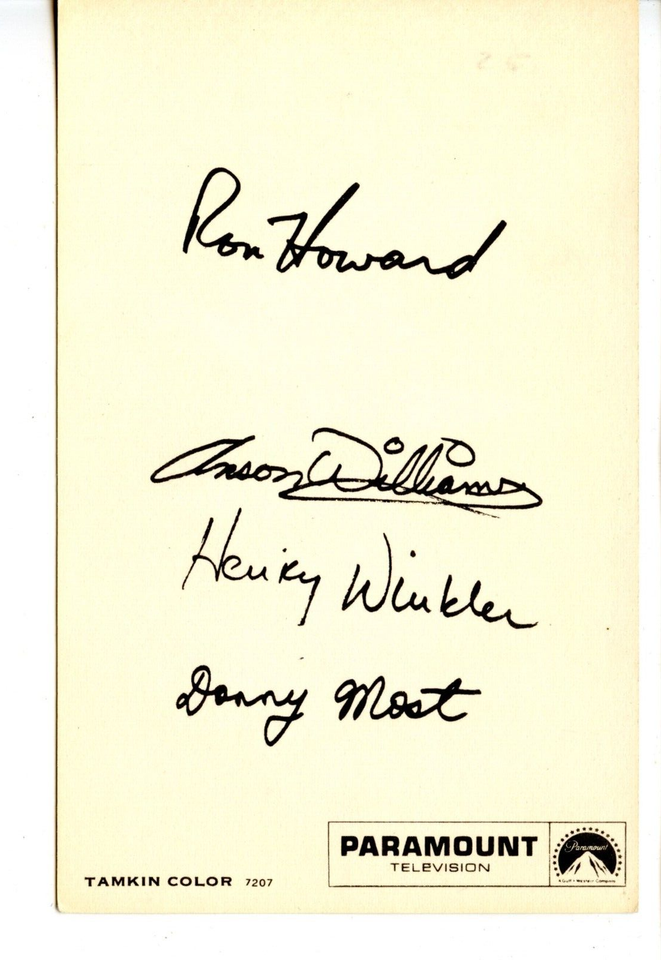 Ron Howard
Anson Williams
Henry Winkler
Donny Most
PARAMOUNT
TELEVISION
Paramount
A Gulf + Western Company
TAMKIN COLOR 7207